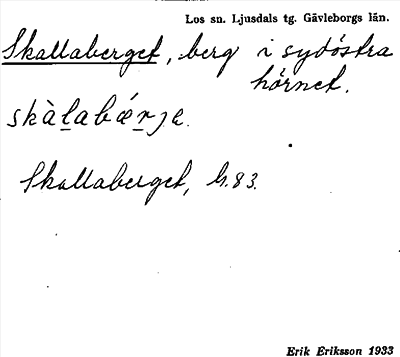 Los sn. Ljusdals tg. Gävleborgs län.
Skallaberget, berg i sydöstra
hörnet.
skàlabǽrje.
Skallaberget, h.83.
Erik Eriksson 1933